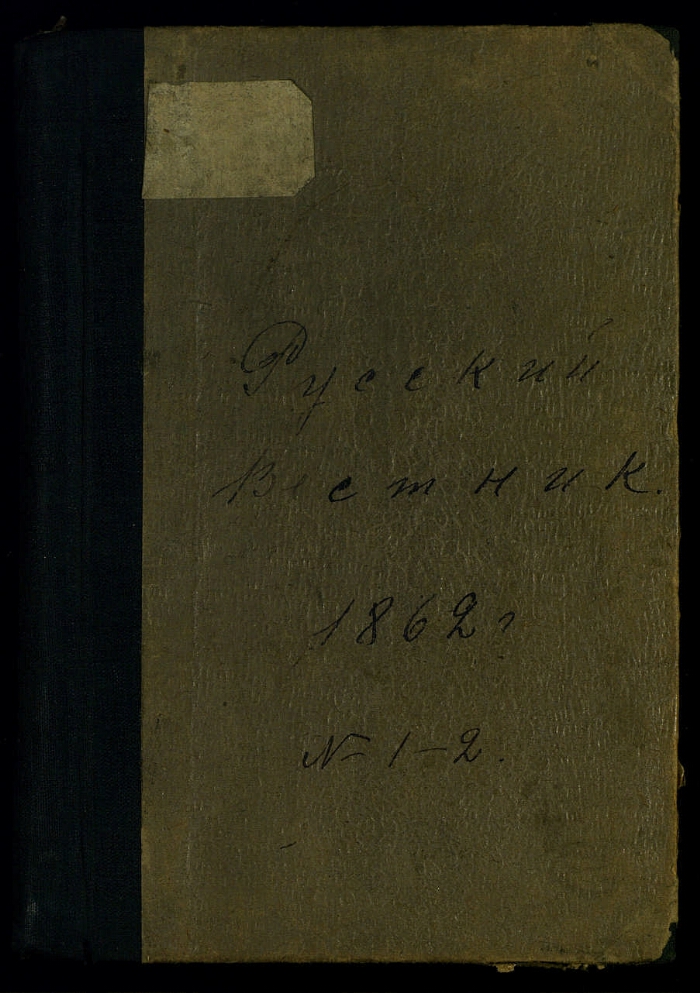 Русский
Вестник.
1862 г
№ 1-2.